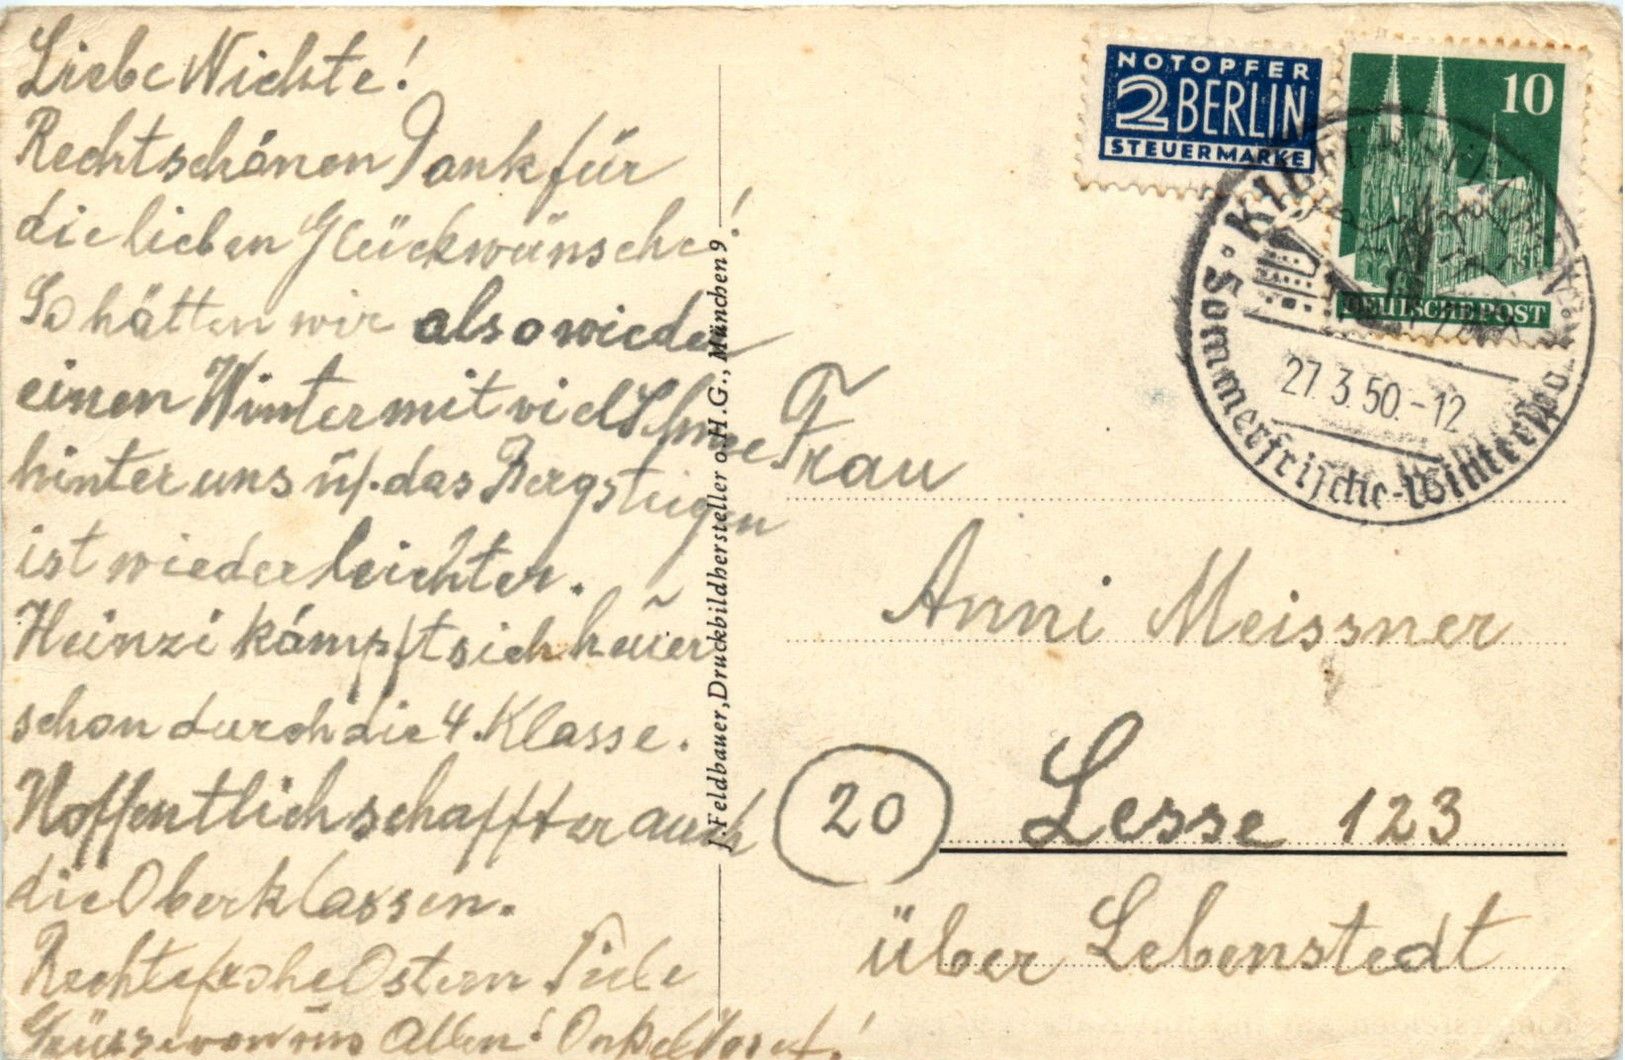 Liebe Nichte!
Recht schönen Dank für
die lieben Glückwünsche!
So hätten wir also wieder
einen Winter mit viel Schnee
hinter uns u. das Bergsteigen
ist wieder leichter.
Heinzi kämpft sich heuer
schon durch die 4. Klasse.
Hoffentlich schafft er auch
die Oberklassen.
Recht frohe Ostern Viele
Grüsse von uns Allen! Onkel
J. Feldbauer, Druckbildhersteller o.H.G., München 9
NOTOPFER
2 BERLIN
STEUERMARKE
10
DEUTSCHE POST
27.3.50.-12
Sommerfrische-Wintersp.
Frau
Anni Meissner
20
Lesse 123
über Lebenstedt